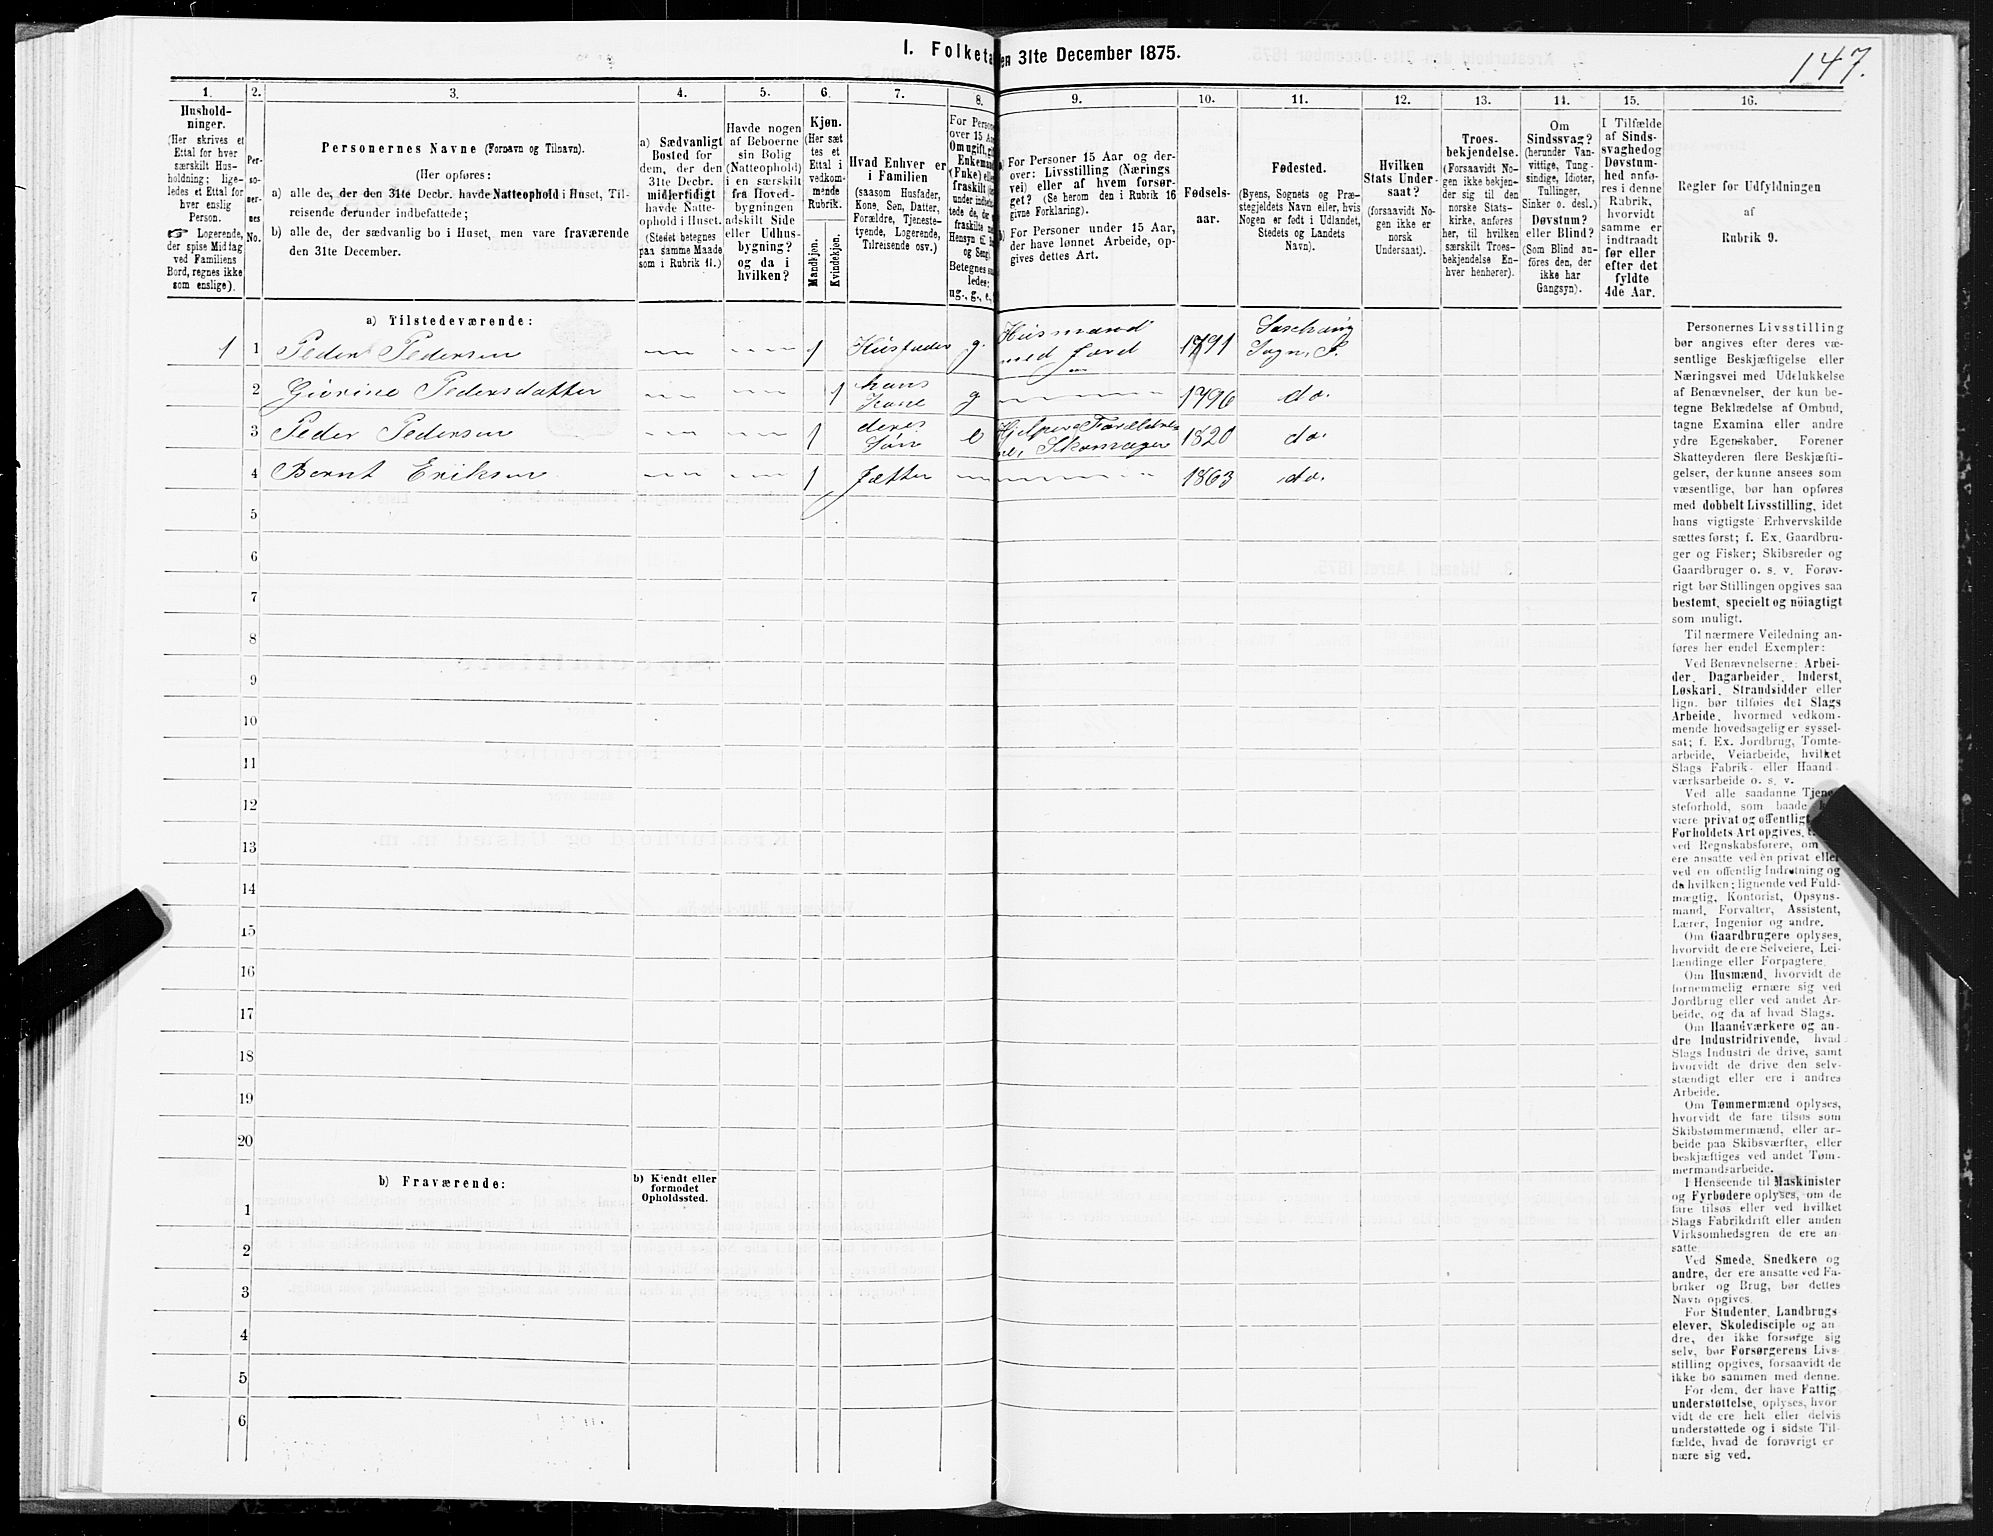 I. Folketa en 31te December 1875.
147.
1. 2. 3. 4. 5. 6. 7. 8. 9. 10. 11. 12. 13. 14. 15. 16.
Hushold-
ninger.
(Her skrives et
Ettal for hver
særskilt Hus-
holdning; lige-
ledes et Ettal for
hver enslig
Person.
☞ Logerende,
der spise Midtag
ved Familiens
Bord, regnes ikke
som enslige).
Per-
so-
ner-
nes
No.
Personernes Navne (Fornavn og Tilnavn).
(Her opføres:
a) alle de, der den 31te Decbr. havde Natteophold i Huset, Til-
reisende derunder indbefattede;
b) alle de, der sædvanlig bo i Huset, men vare fraværende
den 31te December.
a) Sædvanligt
Bosted for
dem, der den
31te Decbr.
midlertidigt
havde Natte-
ophold i Huset.
(Stedet betegnes
paa samme Maade
som i Rubrik 11.)
Havde nogen
af Beboerne
sin Bolig
(Natteophold)
i en særskilt
fra Hoved-
bygningen
adskilt Side
eller Udhus-
bygning?
og da i
hvilken?
Kjøn.
(Her sæt
tes et
Ettal i
vedkom-
mende
Rubrik.
Mandkjøn.
Kvindekjøn.
Hvad Enhver er
i Familien
(saasom Husfader,
Kone, Søn, Datter,
Forældre, Tjeneste-
tyende, Logerende,
Tilreisende osv.)
For Person
over 15 Aa
Om ugift, gi
Enkemand
(Enke) elle
fraskilt (he
under indbe
tede de, der
fraskilte m
Hensyn til
og Seng).
Betegnes saa
ledes:
ug., g., e.,
a) For Personer 15 Aar og der-
over: Livsstilling (Nærings
vei) eller af hvem forsør-
get? (Se herom den i Rubrik 16
givne Forklaring).
b) For Personer under 15 Aar,
der have lønnet Arbeide, op-
gives dettes Art.
Fødsels-
aar.
Fødested.
(Byens, Sognets og Præ-
stegjeldets Navn eller, hvis
Nogen er født i Udlandet,
Stedets og Landets
Navn).
Hvilken
Stats Under-
saat?
(forsaavidt No-
gen ikke er
norsk
Undersaat).
Troes-
bekjendelse.
(Forsaavidt No-
gen ikke bekjen-
der sig til den
norske Stats-
kirke, anføres
her, til hvilken
særskilt Troes-
bekjendelse En-
hver henhører).
Om
Sindssvag?
(herunder Van-
vittige, Tung-
sindige, Idioter,
Tullinger,
Sinker o. desl.)
Døvstum?
eller Blind?
(Som Blind an-
föres den, der
ikke har
Gangsyn).
I Tilfælde
af Sinds-
svaghed og
Døvstum-
hed anfø-
res i denne
Rubrik,
hvorvidt
samme er
indtraadt
før eller
efter det
fyldte
4de Aar.
Regler for Udfyldningen
af
Rubrik 9.
a) Tilstedeværende:
1 1 Peder Pedersen 1 Husfader g. Husmand med Jord 1791 Sogn, P.
2 Pedersdatter 1 hans Kone g 1796 do.
3 Peder Pedersen 1 deres Søn e Skomager 1820 do.
4 Bernt Eriksen 1 1863 do.
5
6
7
8
9
10
11
12
13
14
15
16
17
18
19
20
b) Fraværende:
b) Kjendt eller
formodet
Opholdssted.
1
2
3
4
5
6
Personernes Livsstilling
bør angives efter deres væ-
sentlige Beskjæftigelse eller
Næringsvei med Udelukkelse
af Benævnelser, der kun be-
tegne Beklædelse af Ombud,
tagne Examina eller andre
ydre Egenskaber. Forener
Skatteyderen flere Beskjæfti-
gelser, der kunne ansees som
væsentlige, bør han opføres
med dobbelt Livsstilling, idet
hans vigtigste Erhvervskilde
sættes først; f. Ex. Gaardbru-
ger og Fisker; Skibsreder og
Gaardbruger o. s. v. Forøv-
rigt bør Stillingen opgives saa
bestemt, specielt og nöiagtigt
som muligt.
Til nærmere Veiledning an-
føres her endel Exempler:
Ved Benævnelserne: Arbei-
der, Dagarbeider, Inderst,
Løskarl, Strandsidder eller
lign. bør tilføies det Slags
Arbeide, hvormed vedkom-
mende hovedsagelig er syssel-
sat; f. Ex. Jordbrug, Tomte-
arbeide, Veiarbeide, hvilket
Slags Fabrik- eller Haand-
værksarbeide o. s. v.
Ved alle saadanne Tjene
steforhold, som baade
være privat og offentligt
Forholdets Art opgives,
ved Regnskabsførere, om
ere ansatte ved en privat eller
ved en offentlig Indretning og
da hvilken; lignende ved Fuld-
mægtig, Kontorist, Opsyns-
mand, Forvalter, Assistent,
Lærer, Ingeniør og andre.
Om Gaardbrugere oplyses,
hvorvidt de ere Selveiere, Lei-
lændinge eller Forpagtere.
Om Husmænd, hvorvidt de
fornemmelig ernære sig ved
Jordbrug eller ved andet Ar-
beide, og da af hvad Slags.
Om Haandværkere og an-
dre Industridrivende, hvad
Slags Industri de drive, samt
hvorvidt de drive den selv-
stændigt eller ere i andres
Arbeide.
Om Tømmermænd oplyses,
hvorvidt de fare tilsøs som
Skibstømmermænd, eller ar-
beide paa Skibsværfter, eller
beskjæftiges ved andet Tøm-
mermandsarbeide.
I Henseende til Maskinister
og Fyrbødere oplyses, om de
fare tilsøs eller ved hvilket
Slags Fabrikdrift eller anden
Virksomhedsgren de ere an-
satte
Ved Smede, Snedkere og
andre, der ere ansatte ved Fa-
briker og Brug, bør dettes
Navn opgives.
For Studenter, Landbrugs
elever, Skoledisciple og an
dre, der ikke forsørge sig
selv, bør Forsørgerens Livs-
stilling opgives, forsaavidt de
ikke bo sammen med denne.
For dem, der have Fattig
understøttelse, oplyses, hvor
vidt de ere helt eller delvis
understøttede og i sidste Til-
fælde, hvad de forøvrigt er
nære sig ved.